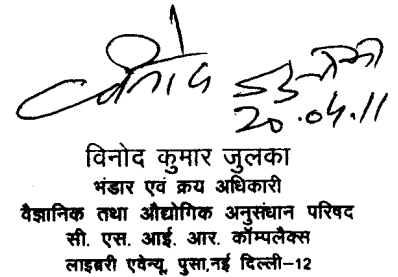 विनोद जुलका
20.04.11
विनोद कुमार जुलका
भंडार एवं क्रय अधिकारी
वैज्ञानिक तथा औद्योगिक अनुसंधान परिषद
सी. एस. आई. आर. कॉम्पलैक्स
लाइब्ररी एवेन्यू, पुसा,नई दिल्ली–12